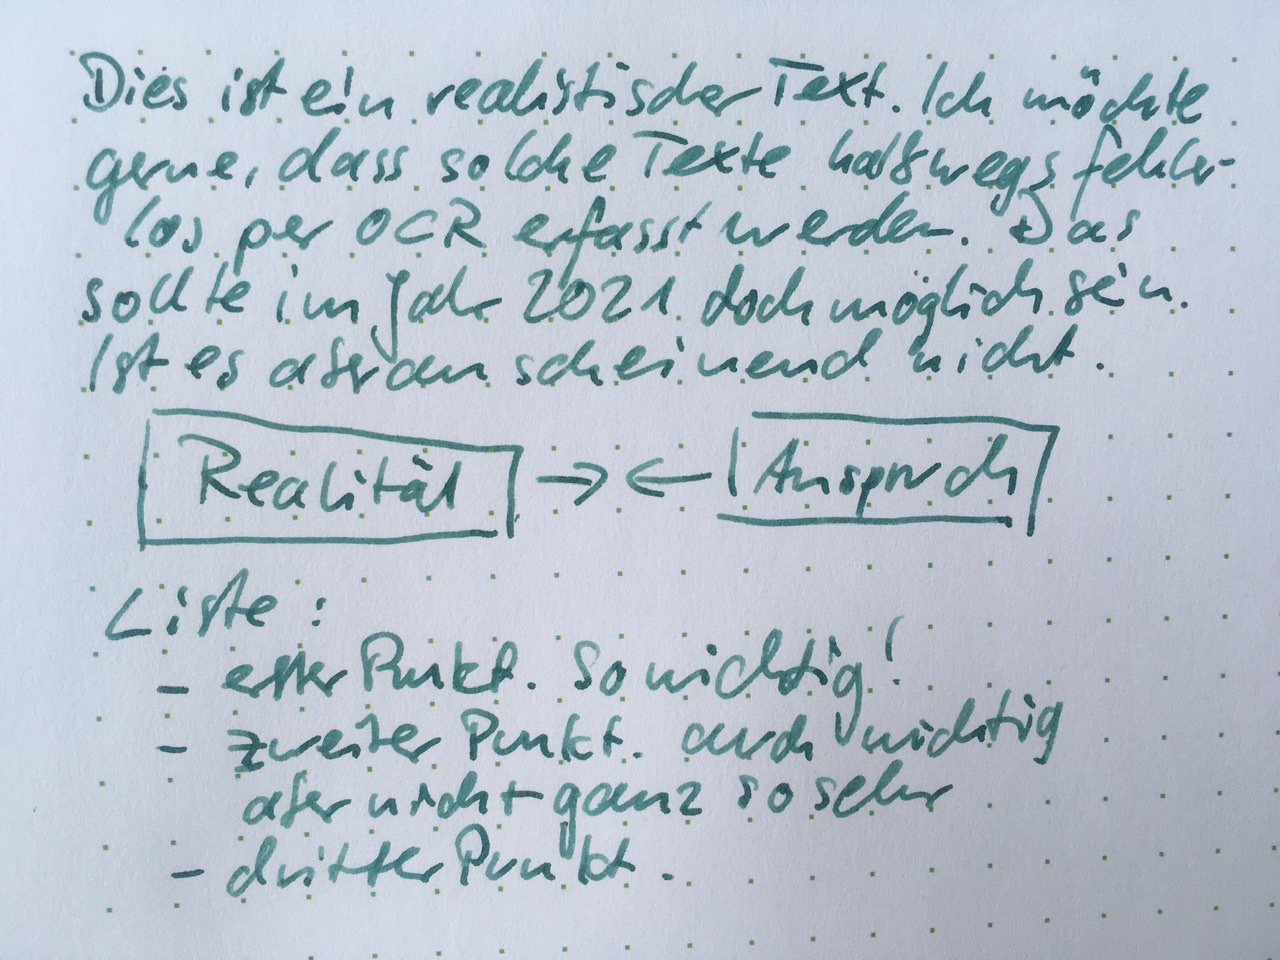 Dies ist ein realistischer Text. Ich möchte
gerne, dass solche Texte halbwegs fehler-
los per OCR erfasst werden. Das
sollte im Jahr 2021 doch möglich sein.
Ist es aber anscheinend nicht.
Realität → ← Anspruch
Liste:
- erster Punkt. So wichtig!
- zweiter Punkt. auch wichtig
aber nicht ganz so sehr
- dritter Punkt.